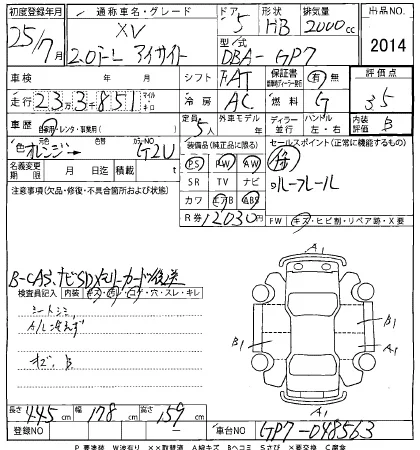 初度登録年月 通称車名・グレード ドア 形状 排気量 出品NO.
25/7月 XV 5 HB 2000cc
2.0i-L アイサイト 型式 DBA-GP7 2014
車検 年 月 シフト FAT 保証書 有 無 評価点
走行 23万3千851 マイル キロ 冷房 AC 燃料 G 3.5
車歴 自家用・レンタ・事業用( ) 定員 5人 外車モデル 年 ディーラー 並行 ハンドル 左・右 内装評価 B
色 オレンジ→ 色替 カラーNO G2U 装備品(純正品に限る) セールスポイント(正常に機能するもの)
名義変更期限 月 日迄 積載 t PS AW PW
注意事項(欠品・修復・不具合箇所および状態) SR TV ナビ ルーフレール
カワ エアB ABS
R券 12030円 FW キズ・ヒビ割・リペア跡・X要
A1
B-CAS、ナビSDメモリーカード後送
検査員記入 内装 キズ・汚レ・コゲ・穴・スレ・キレ
シートシミ
A/C冷えず
B1 B1 A1
キズ、B
A1
長さ 445cm 幅 178cm 高さ 159cm
登録NO 車台NO GP7-048563
P 要塗装 W波有り ××取替済 A線キズ Bヘコミ Sさび ×要交換 C腐食